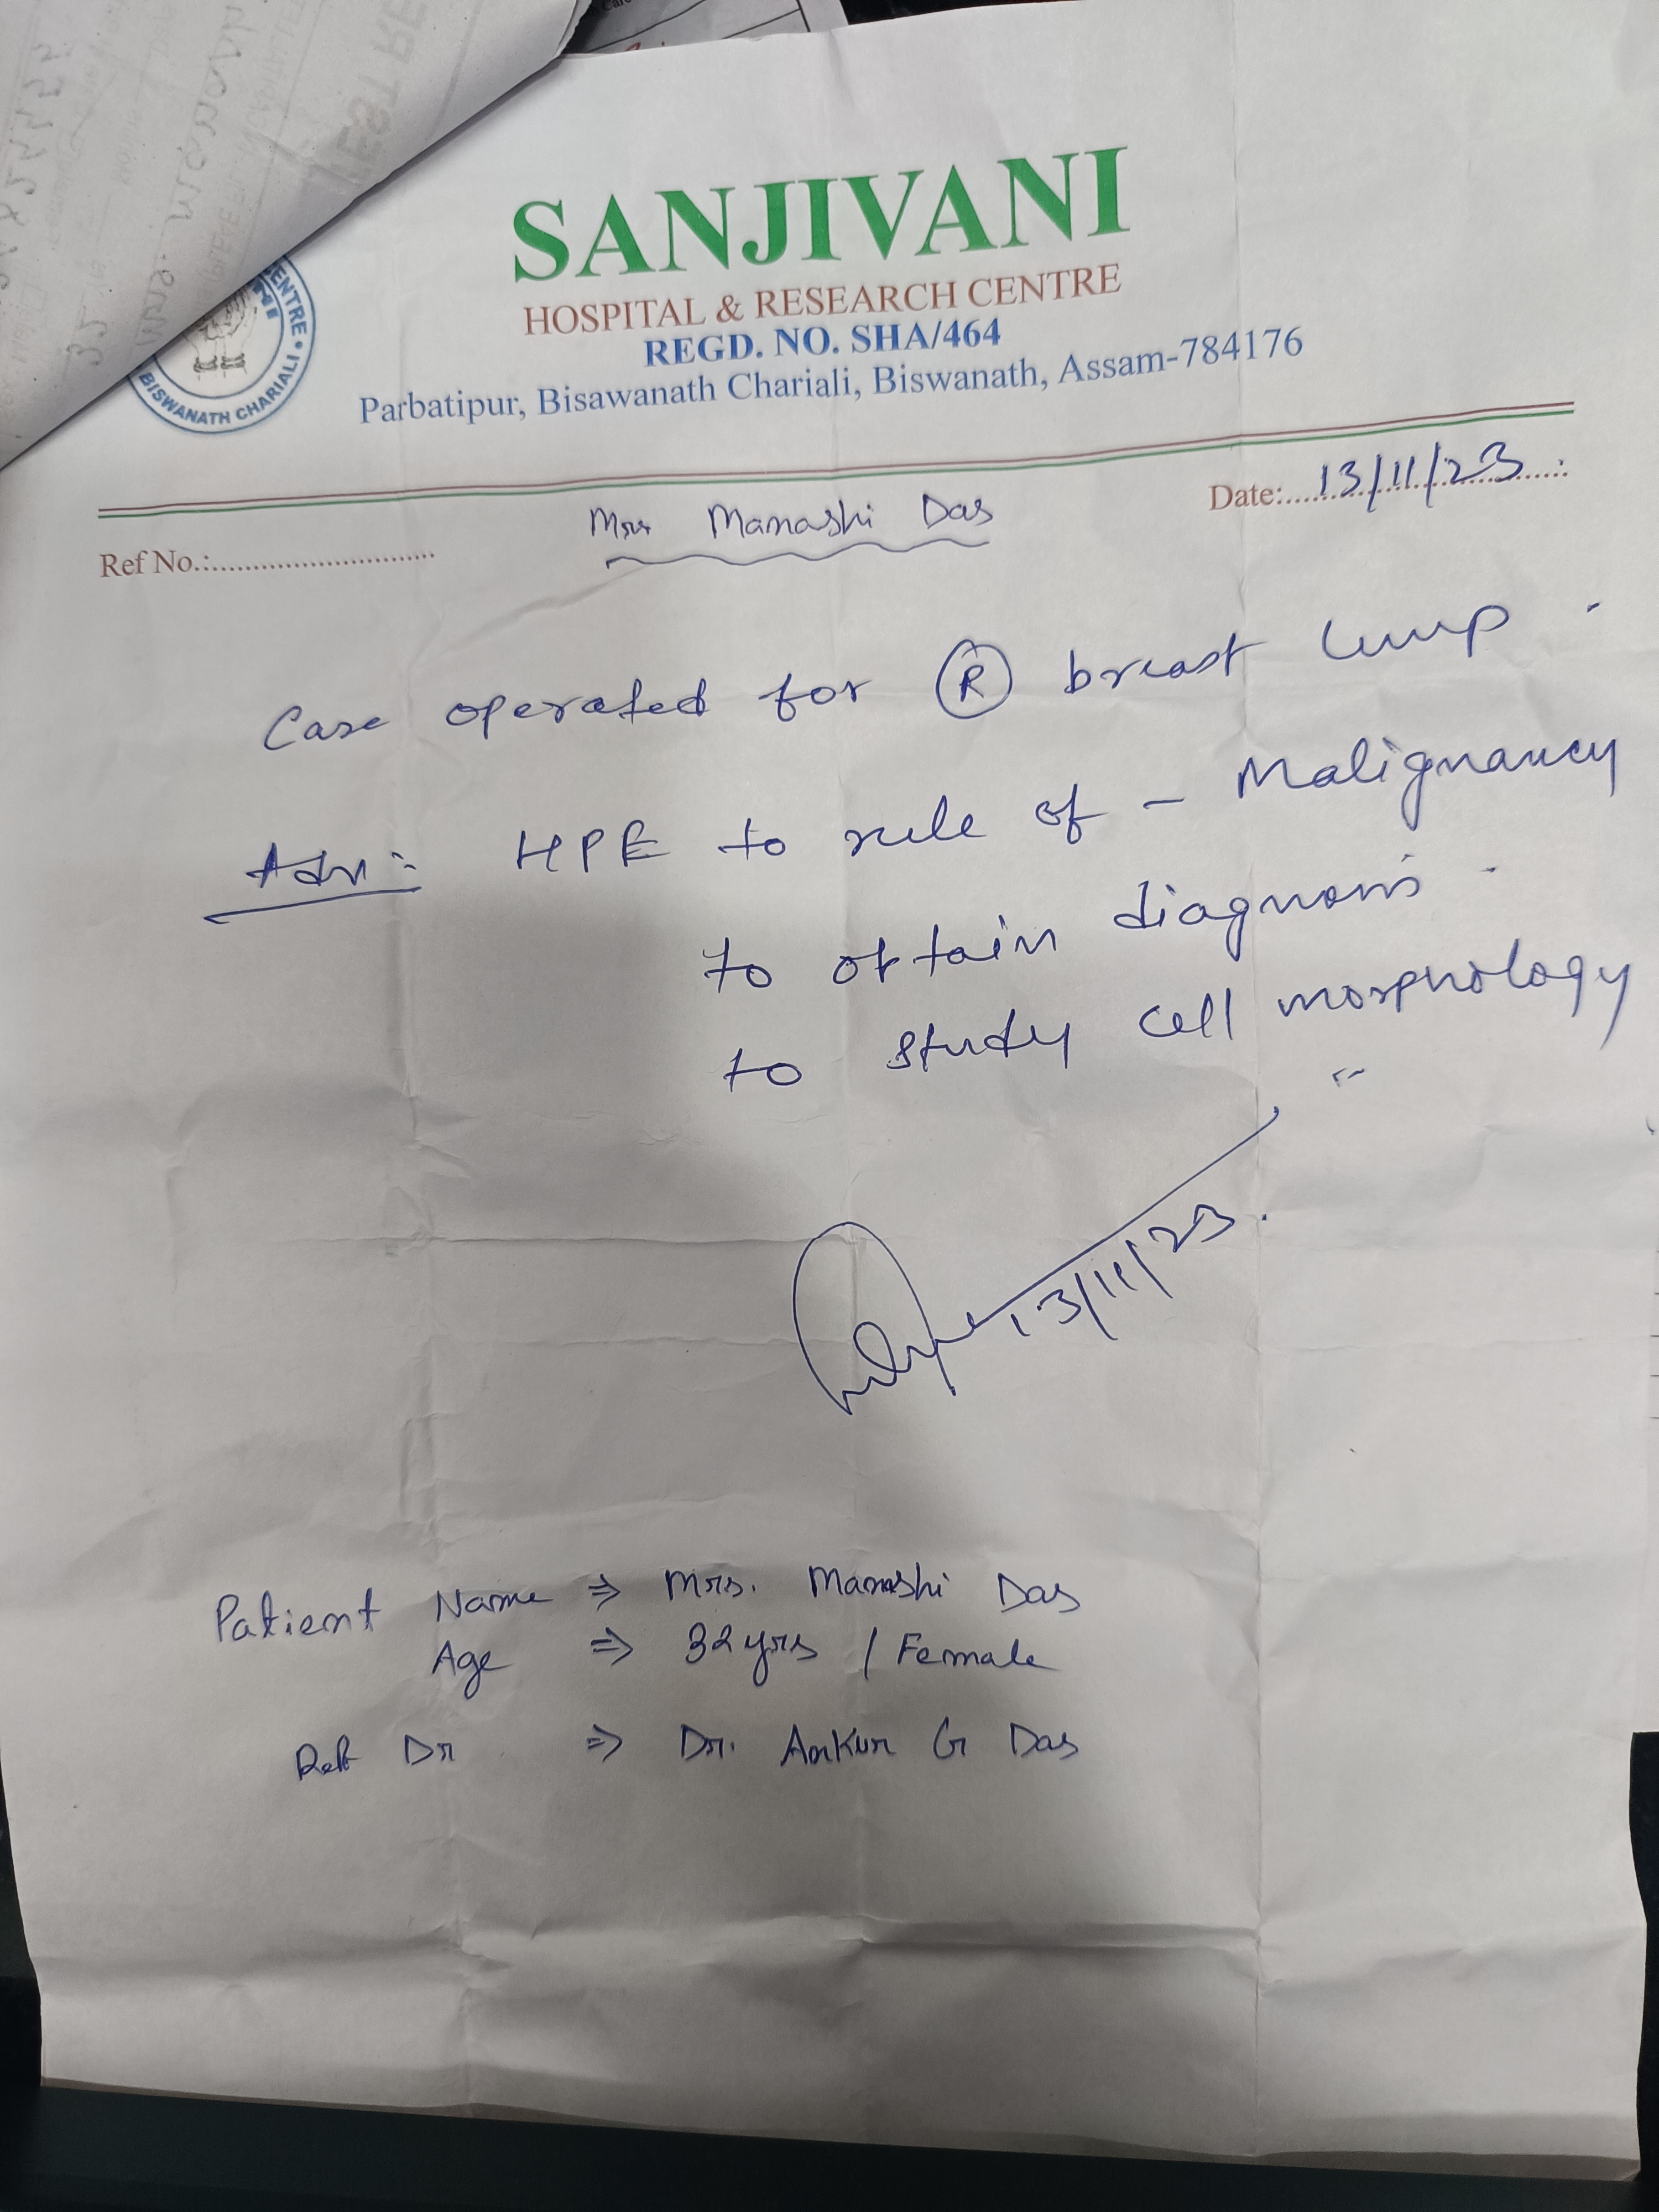 SANJIVANI
HOSPITAL & RESEARCH CENTRE
REGD. NO. SHA/464
Parbatipur, Bisawanath Chariali, Biswanath, Assam-784176
ENTRE • BISWANATH CHARIALI •
Date:....13/11/23....
Ref No.:............................
Mrs Manashi Das
Case operated for Ⓡ breast lump .
Adv:- HPE to rule of - Malignancy
to obtain diagnosis .
to study cell morphology
13/11/23.
Patient Name ⇒ Mrs. Manashi Das
Age ⇒ 32 yrs / Female
Ref Dr ⇒ Dr. Ankur G Das